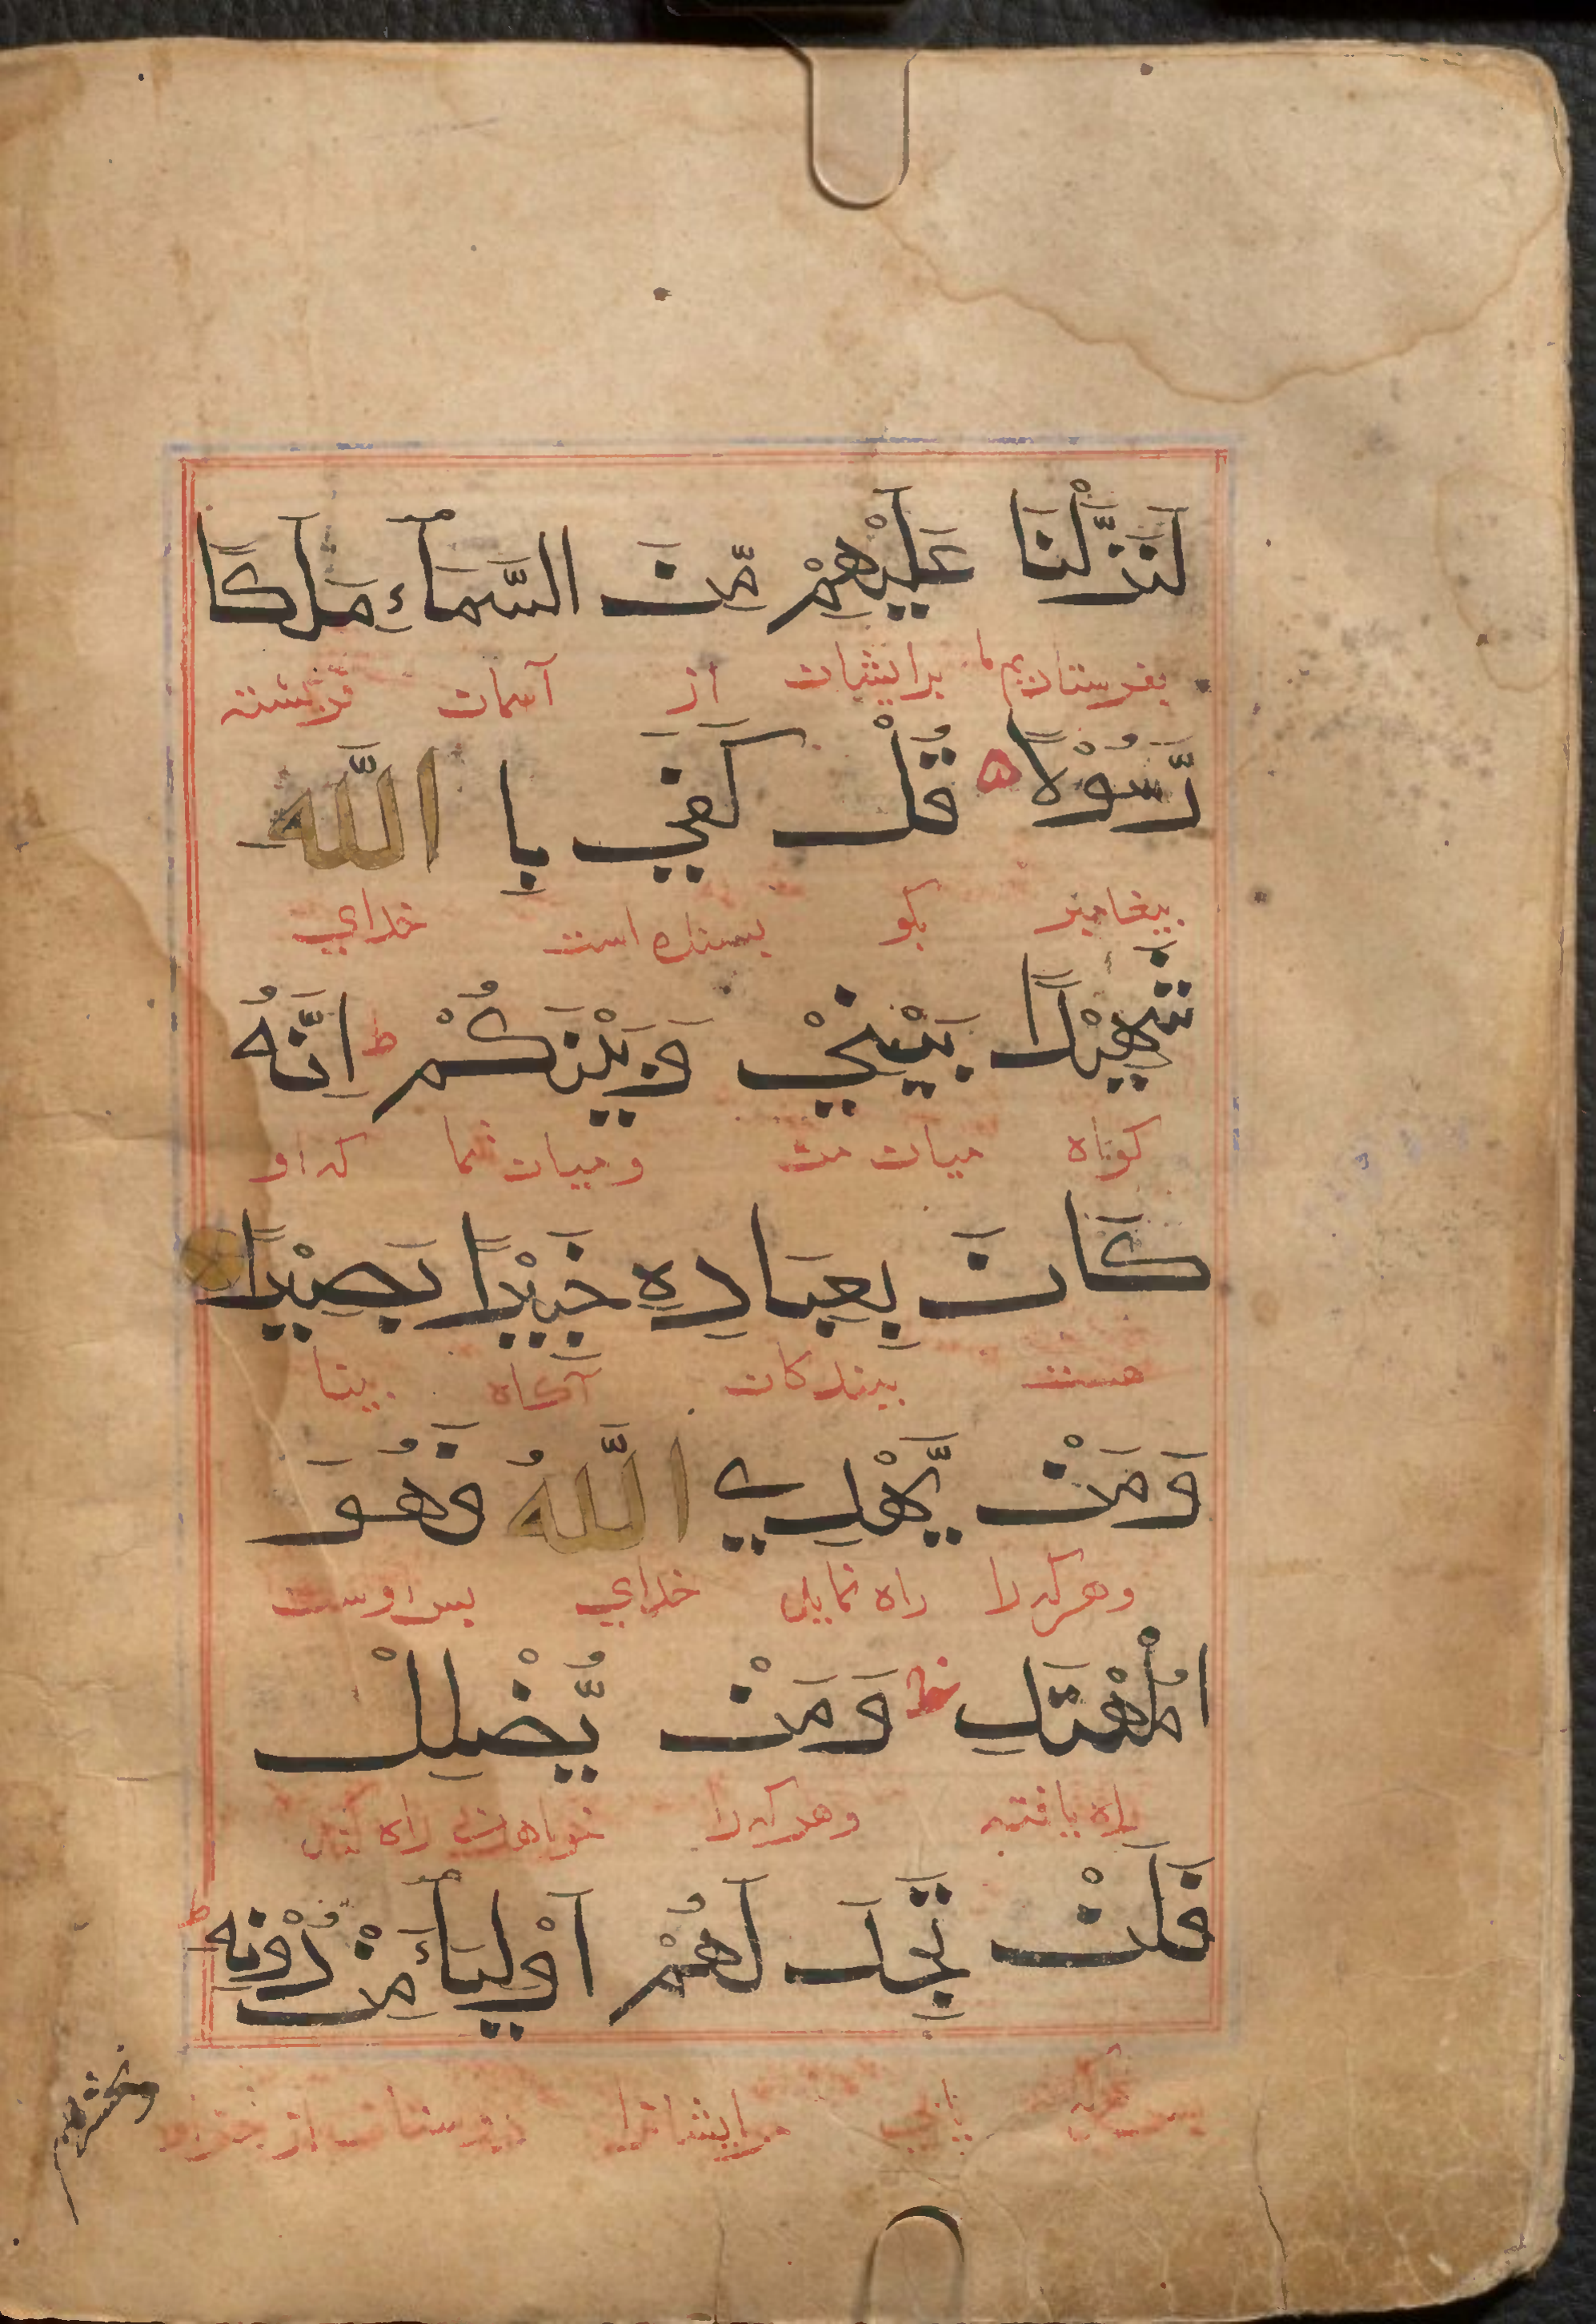 لَنَزَّلْنَا عَلَيْهِمْ مِّنَ السَّمَآءِ مَلَكًا
بفرستادیم ما برایشان از آسمان فرشته
رَّسُوْلًا ه قُلْ كَفَىٰ بِا اللّٰهِ
پیغامبر بگو بسنده است خدای
شَهِيْدًا بَيْنِيْ وَبَيْنَكُمْ ط اِنَّهُ
كواه میان من و میان شما که او
كَانَ بِعِبَادِهِ خَبِيْرًا بَصِيْرًا
هست ببندکان آکاه بینا
وَمَنْ يَّهْدِي اللّٰهُ فَهُوَ
و هر که را راه نماید خدای پس اوست
الْمُهْتَدِ ط وَمَنْ يُّضْلِلْ
راه یافته و هر که را راه
فَلَنْ تَجِدَ لَهُمْ اَوْلِيَآءَ مِنْ دُوْنِهِ ط
یابی مرایشانرا دوستان از
ونحشرهم